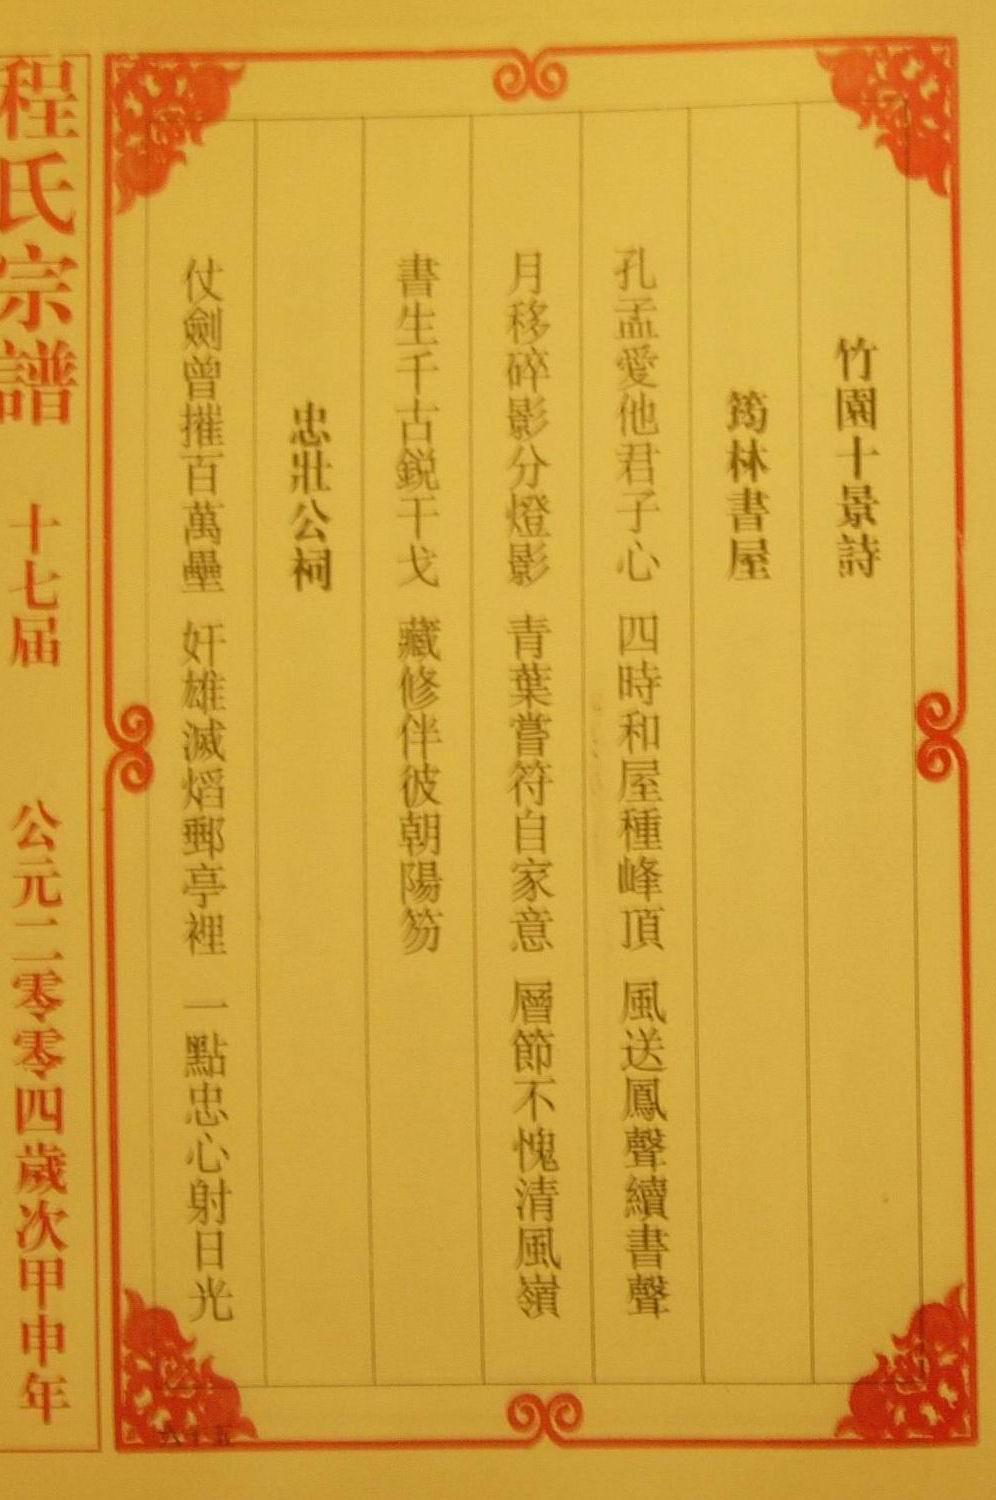 竹園十景詩
筠林書屋
孔孟愛他君子心 四時和屋種峰頂 風送鳳聲續書聲
月移碎影分燈影 青葉嘗符自家意 層節不愧清風嶺
書生千古鋭干戈 藏修伴彼朝陽笏
忠壯公祠
仗劍曾摧百萬壘 奸雄滅熖郵亭裡 一點忠心射日光
程氏宗譜 十七届 公元二零零四歲次甲申年